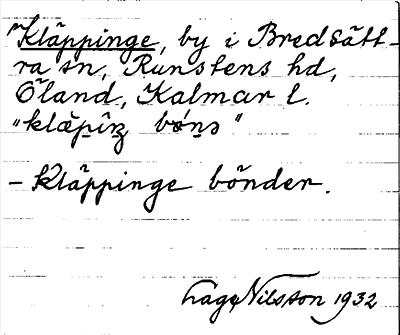 "Kläppinge, by i Bredsätt-
ra sn, Runstens hd,
Öland, Kalmar l.
"klæpiŋ bøns"
- Kläppinge bönder.
Tage Nilsson 1932